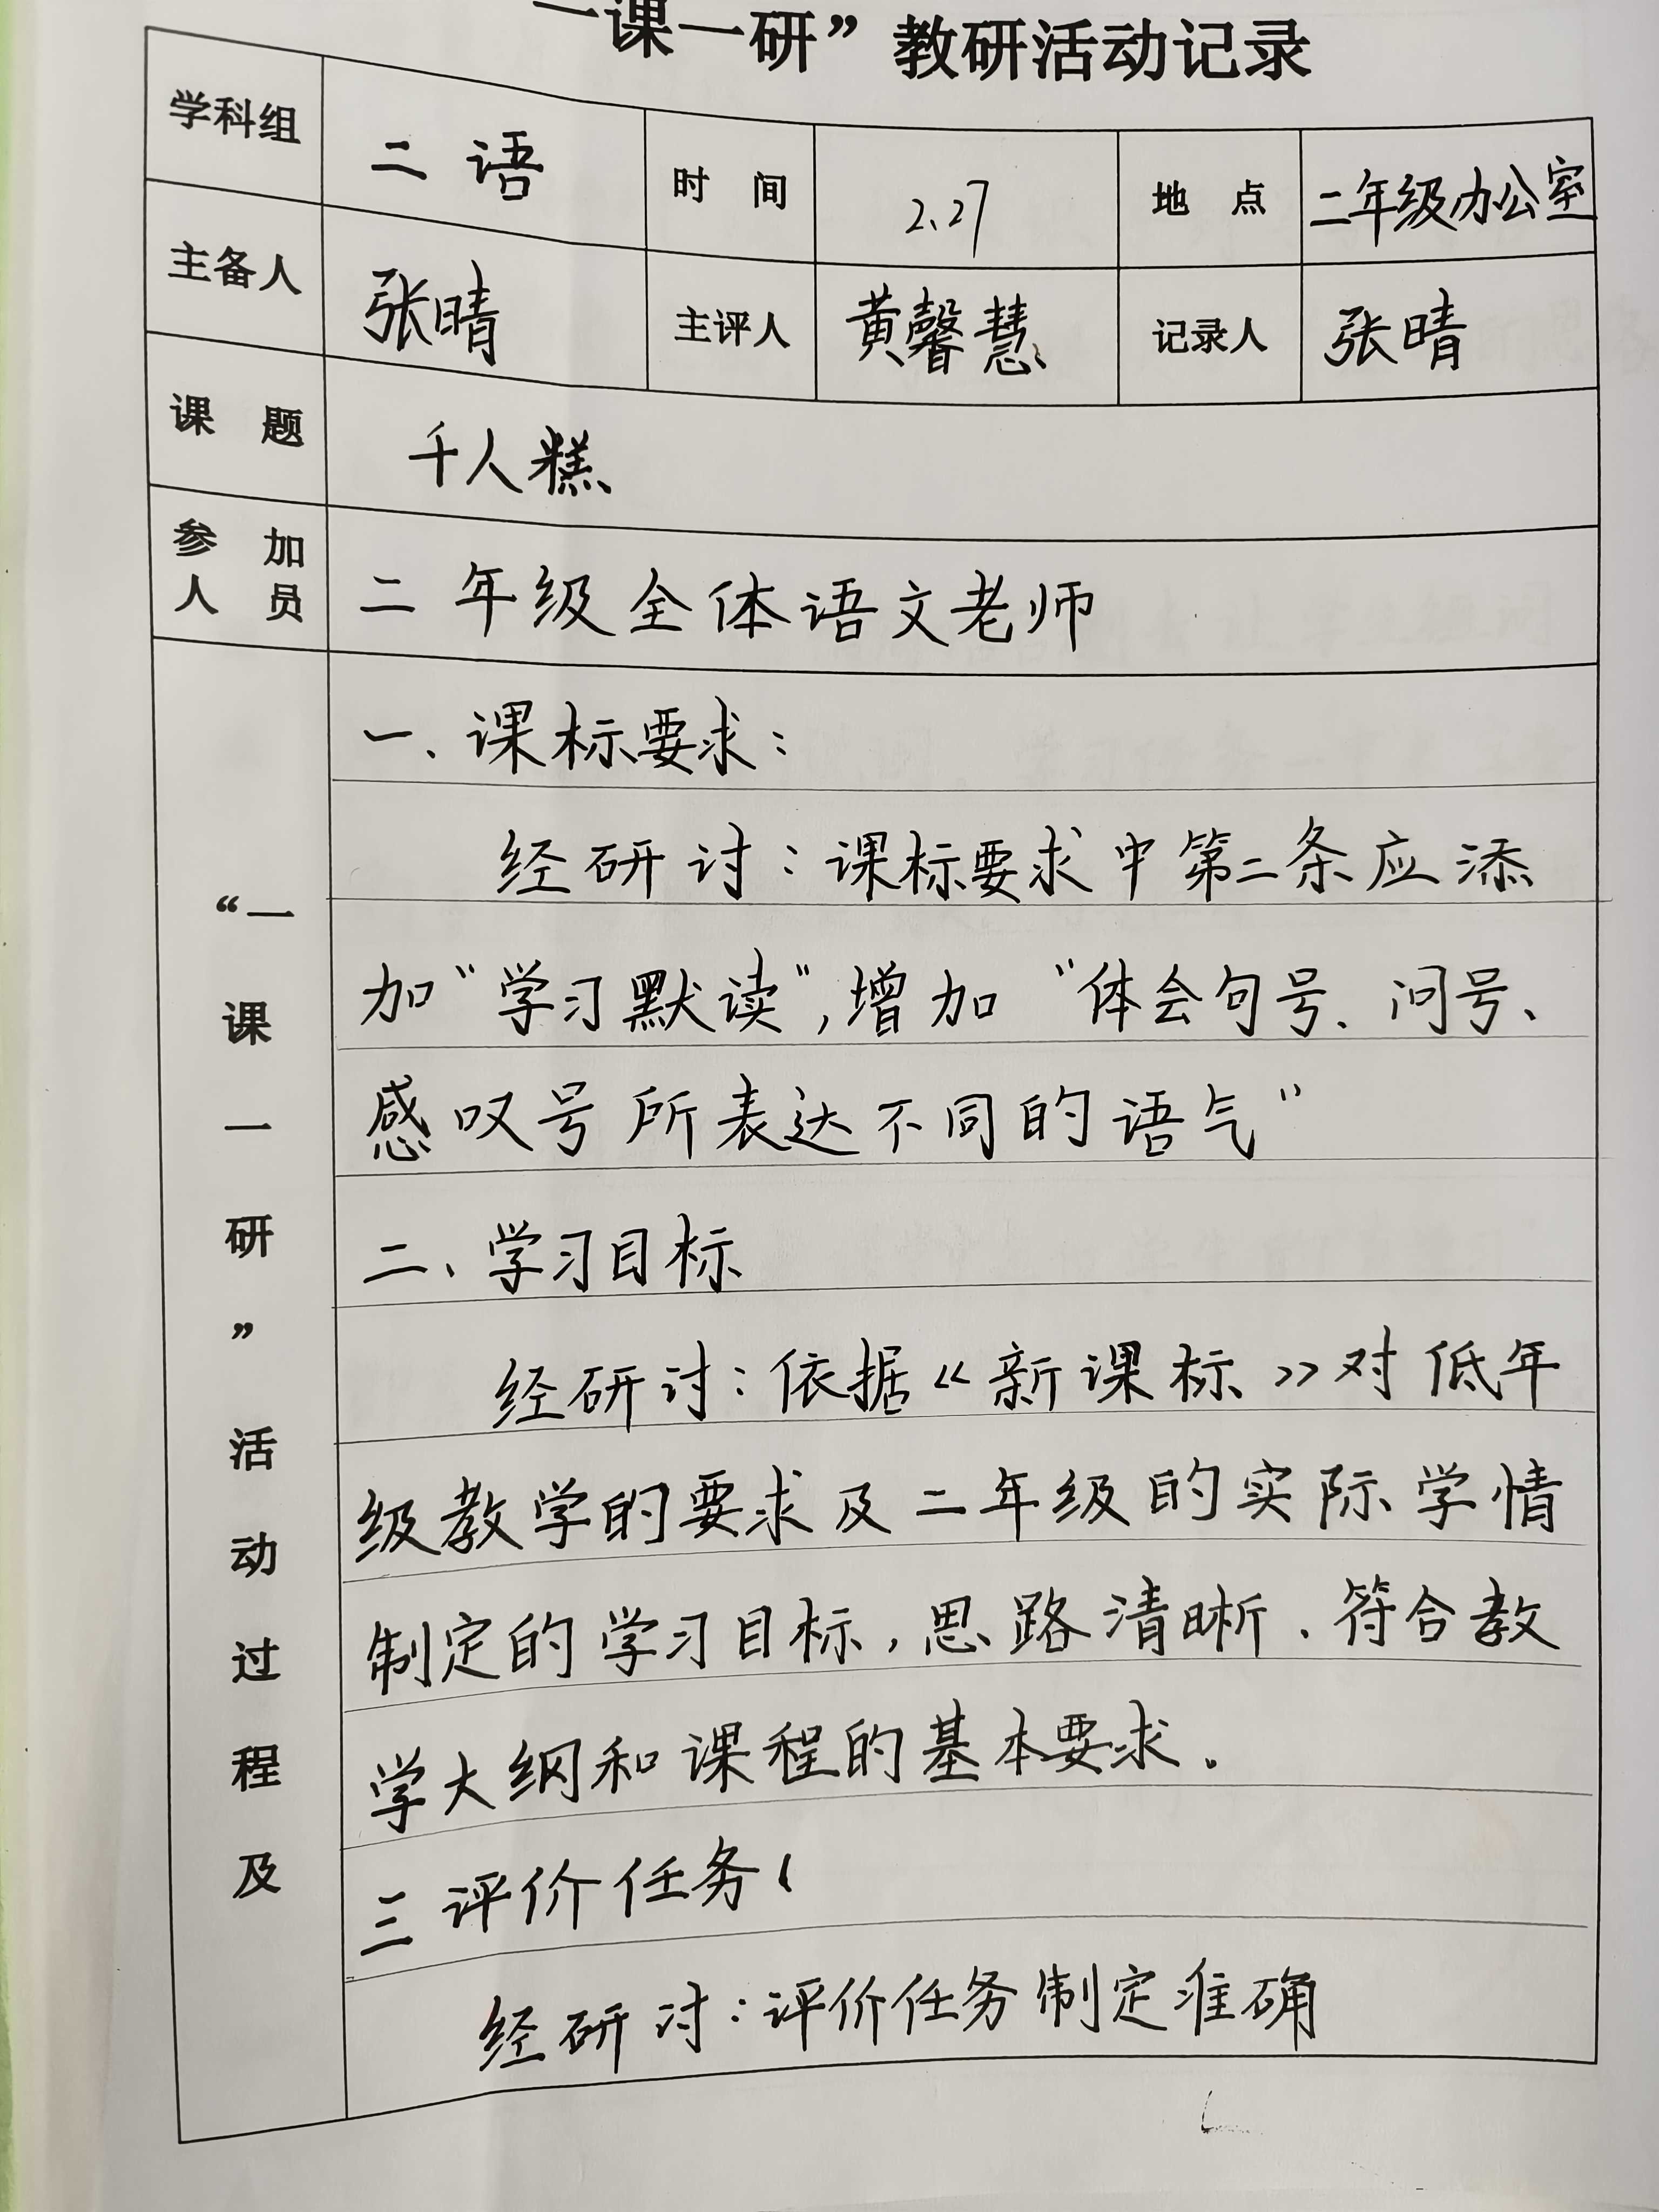 一课一研”教研活动记录
学科组 二语 时间 2、27 地点 二年级办公室
主备人 张晴 主评人 黄馨慧 记录人 张晴
课题 千人糕
参加人员 二年级全体语文老师
“一课一研”活动过程及
一、课标要求：
经研讨：课标要求中第二条应添
加“学习默读”，增加“体会句号、问号、
感叹号所表达不同的语气”
二、学习目标
经研讨：依据《新课标》对低年
级教学的要求及二年级的实际学情
制定的学习目标，思路清晰、符合教
学大纲和课程的基本要求。
三评价任务：
经研讨：评价任务制定准确